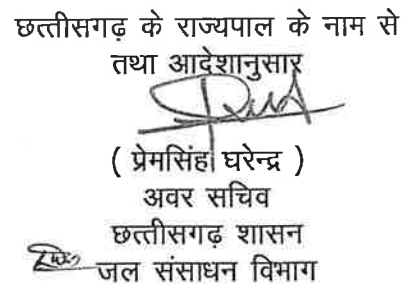 छत्तीसगढ़ के राज्यपाल के नाम से
तथा आदेशानुसार
( प्रेमसिंह घरेन्द्र )
अवर सचिव
छत्तीसगढ़ शासन
जल संसाधन विभाग